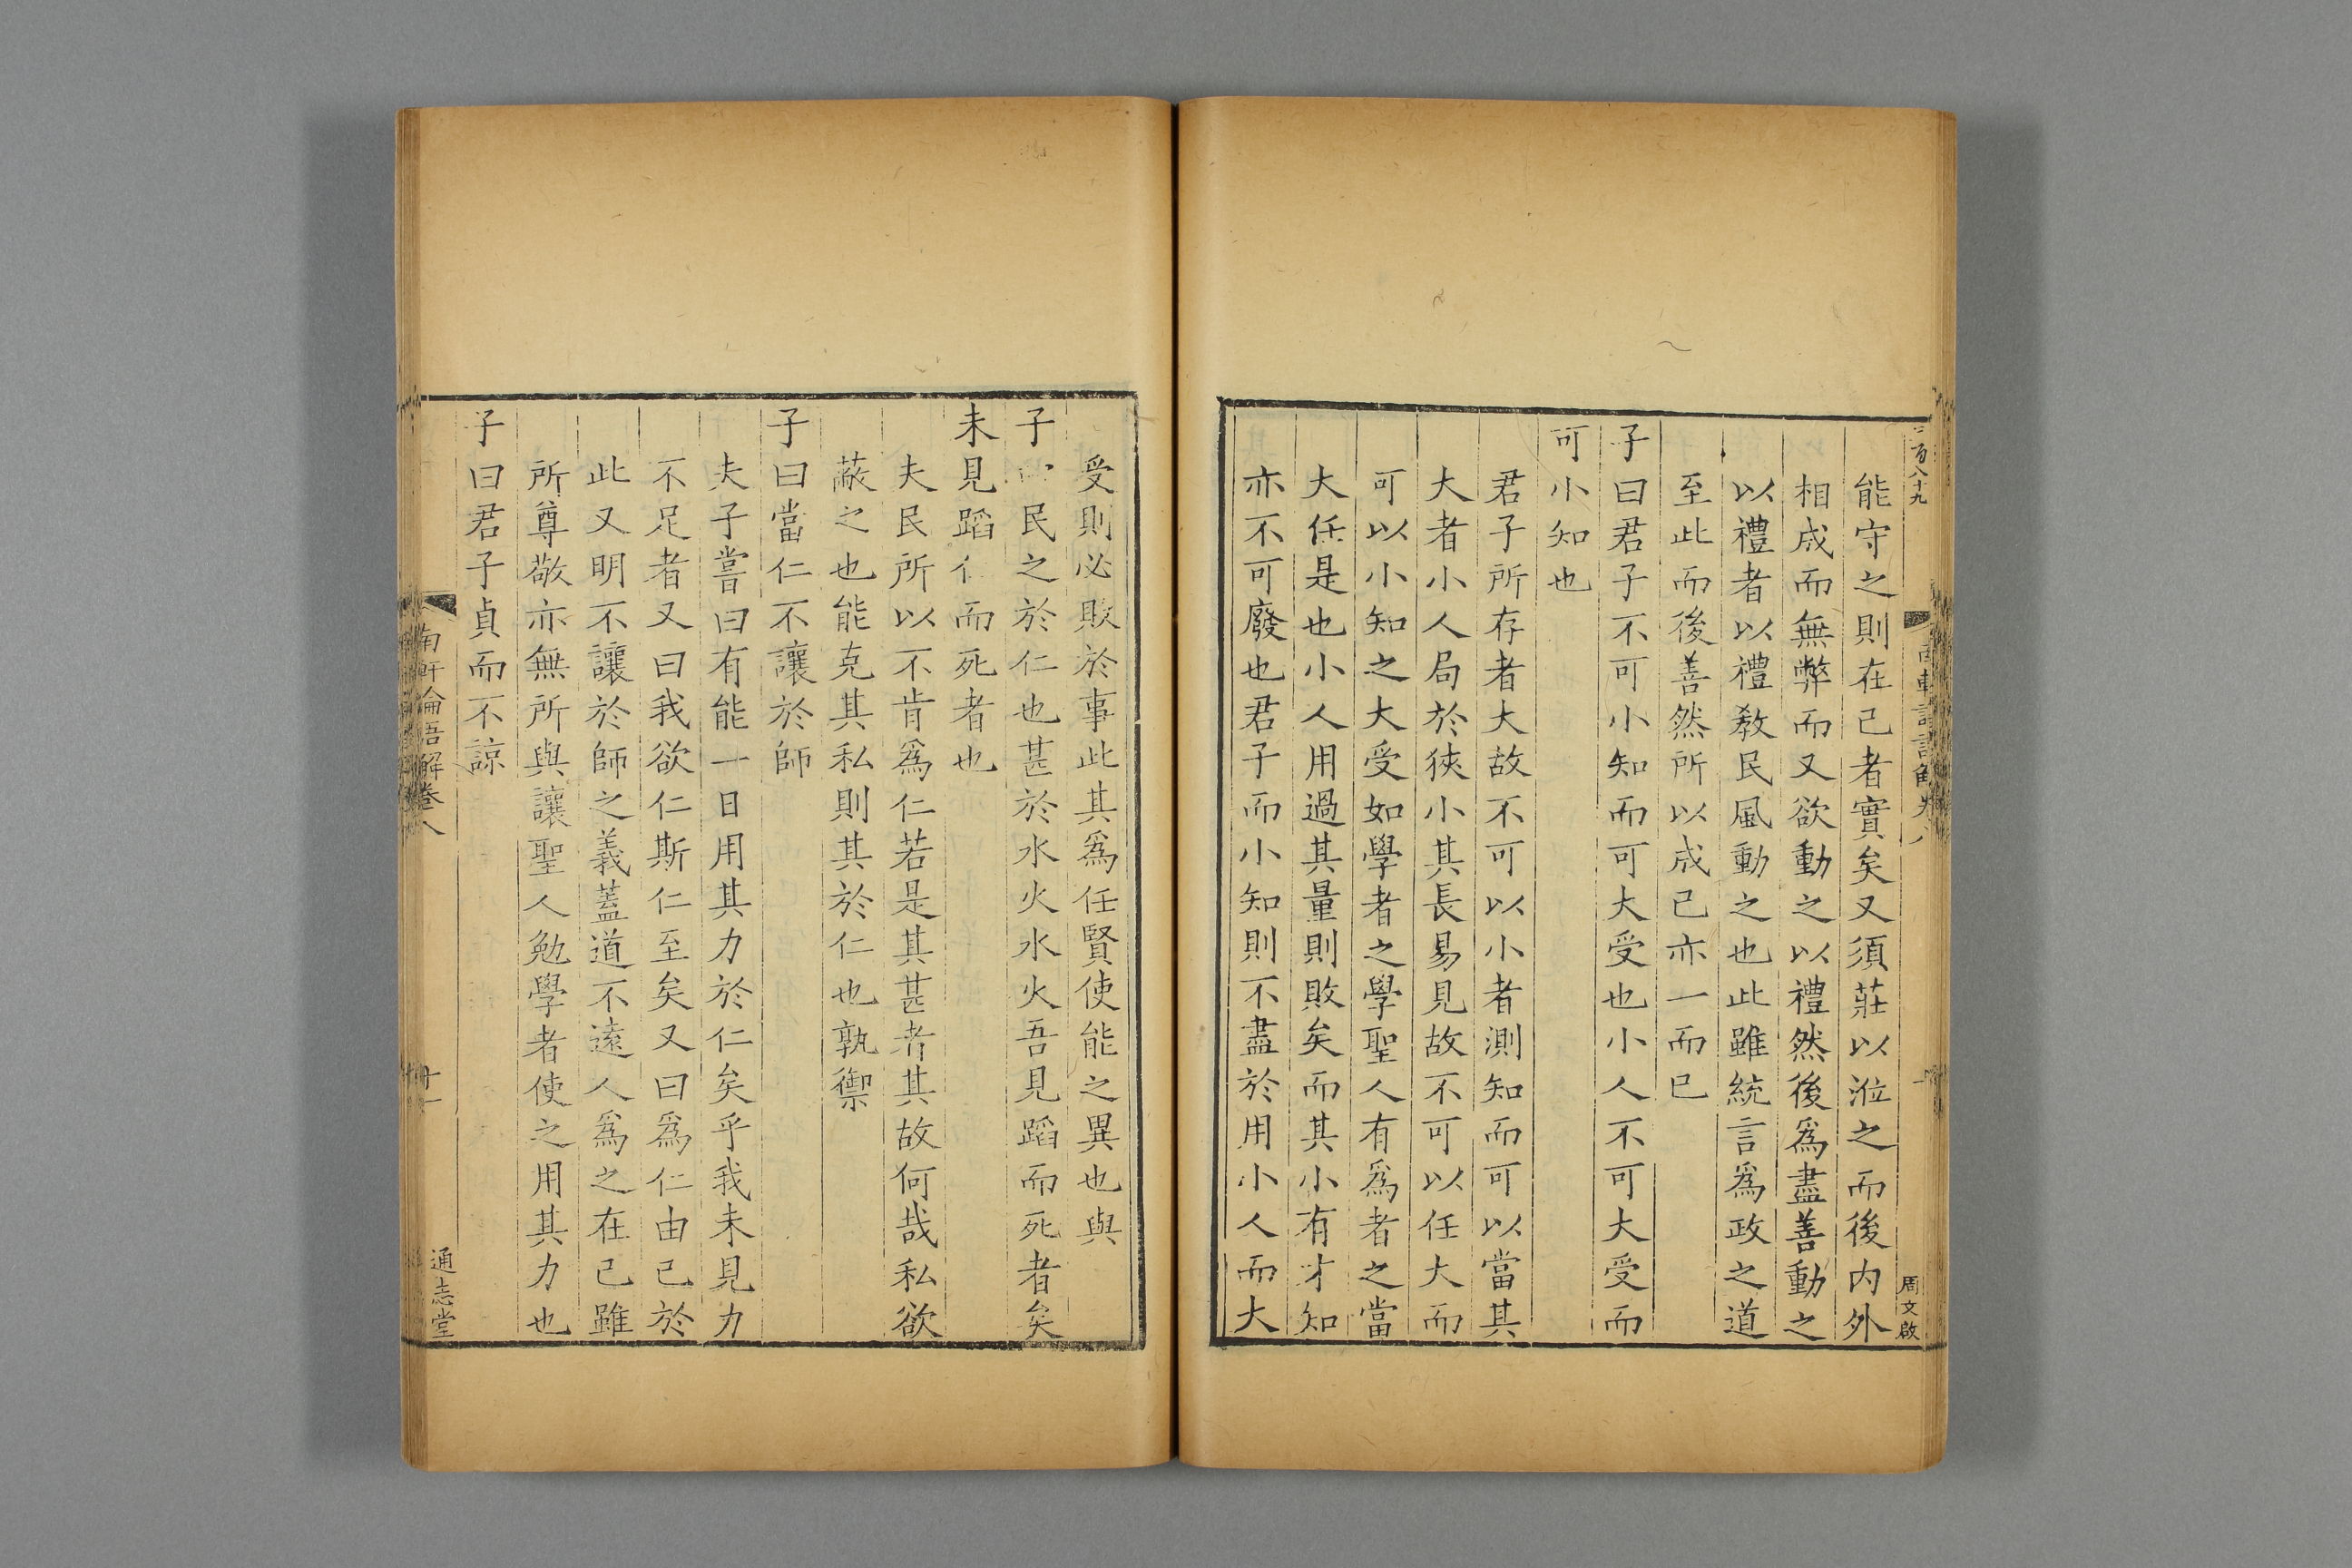 百八十九
周文啟
能守之則在己者實矣又須莊以涖之而後内外
相成而無弊而又欲動之以禮然後爲盡善動之
以禮者以禮教民風動之也此雖統言爲政之道
至此而後善然所以成己亦一而已
子曰君子不可小知而可大受也小人不可大受而
可小知也
君子所存者大故不可以小者測知而可以當其
大者小人局於狹小其長易見故不可以任大而
可以小知之大受如學者之學聖人有爲者之當
大任是也小人用過其量則敗矣而其小有才知
亦不可廢也君子而小知則不盡於用小人而大
受則必敗於事此其爲任賢使能之異也與
子 民之於仁也甚於水火水火吾見蹈而死者矣
未見蹈仁而死者也
夫民所以不肯爲仁若是其甚者其故何哉私欲
蔽之也能克其私則其於仁也孰禦
子曰當仁不讓於師
夫子嘗曰有能一日用其力於仁矣乎我未見力
不足者又曰我欲仁斯仁至矣又曰爲仁由己於
此又明不讓於師之義蓋道不遠人爲之在己雖
所尊敬亦無所與讓聖人勉學者使之用其力也
子曰君子貞而不諒
南軒論語解卷八
十一
通志堂